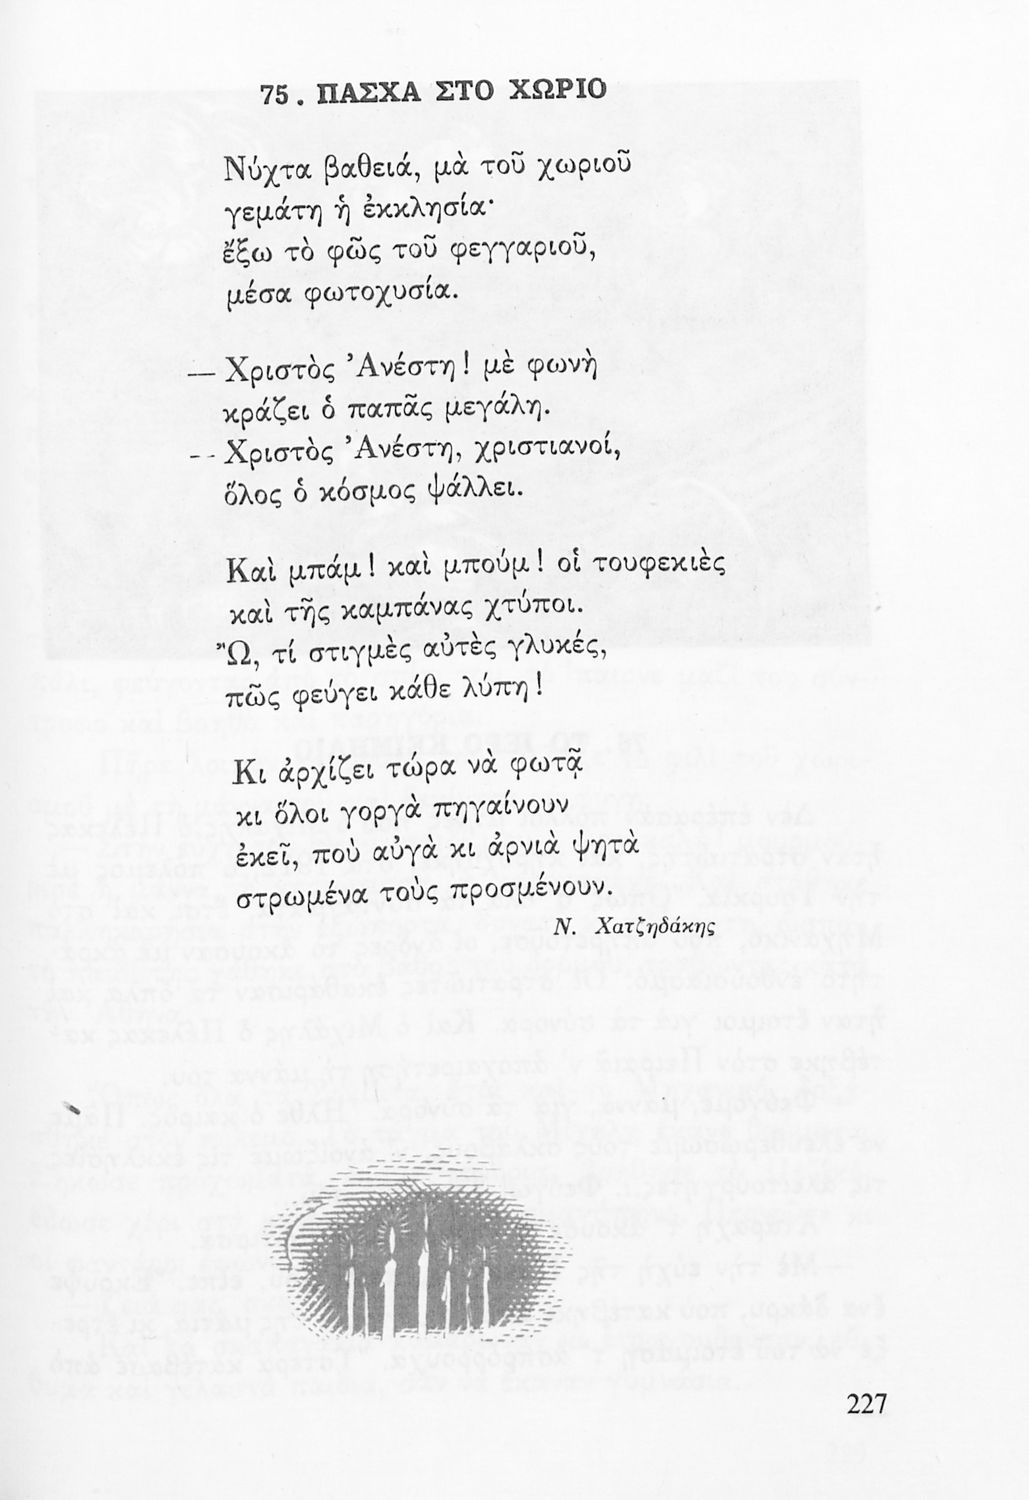 75. ΠΑΣΧΑ ΣΤΟ ΧΩΡΙΟ
Νύχτα βαθειά, μὰ τοῦ χωριοῦ
γεμάτη ἡ ἐκκλησία·
ἔξω τὸ φῶς τοῦ φεγγαριοῦ,
μέσα φωτοχυσία.
— Χριστὸς Ἀνέστη! μὲ φωνὴ
κράζει ὁ παπᾶς μεγάλη.
-- Χριστὸς Ἀνέστη, χριστιανοί,
ὅλος ὁ κόσμος ψάλλει.
Καὶ μπάμ! καὶ μπούμ! οἱ τουφεκιὲς
καὶ τῆς καμπάνας χτύποι.
Ὢ, τί στιγμὲς αὐτὲς γλυκές,
πῶς φεύγει κάθε λύπη!
Κι ἀρχίζει τώρα νὰ φωτᾷ
κι ὅλοι γοργὰ πηγαίνουν
ἐκεῖ, ποὺ αὐγὰ κι ἀρνιὰ ψητὰ
στρωμένα τοὺς προσμένουν.
Ν. Χατζηδάκης
227